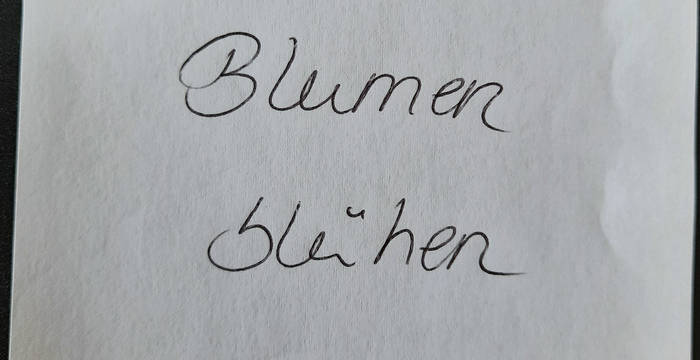 Blumen
blühen